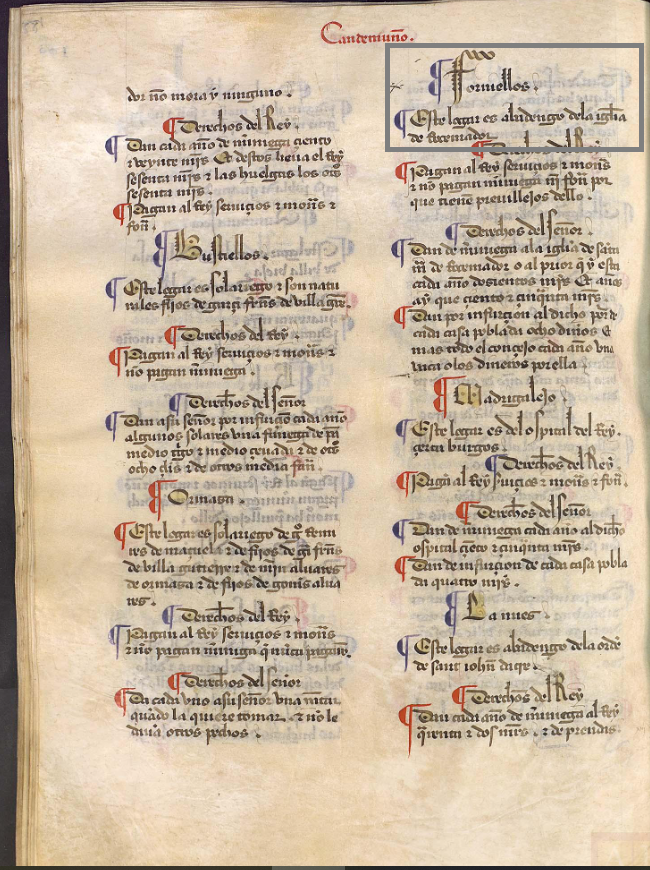 Candemuño.
dor nõ mora y ninguno.
Derechos del Rey
Dan cada año de mĩniega çiento
& veynte mr̃s. Et destos lieua el Rey
sesenta mr̃s & las huelgas los otͦs
sesenta mr̃s.
Pagan al Rey seruiçios & mon̄s &
fon̄.
Bustiellos.
Este logar es solariego & son natu
rales fijos de garçi frñs de villa
Derechos del Rey.
Pagan al Rey seruiçios & mon̄s &
no pagan mĩniega.
Derechos del Señor
Dan a su señor por infurçiõ cada año
algunos solares vna fanega de pã
medio tͥgo & medio çeuada & de otͦs
ocho & de otros media fan̄.
Ormaza.
Este logar es solariego de gͦ Remi
res de & de fijos de frñs
de villa gutierre & de mͥn aluares
de ormaza & de fijos de alua
res.
Derechos del Rey.
Pagan al Rey seruiçios & mon̄s
& nõ pagan
Derechos del Señor
Da cada vno a su señor vna
quãdo la quiere tomar. & nõ le
otros pechos.
Formellos.
Este logar es abadengo dela igl̃ia
de Rocamador
Derechos del Rey
Pagan al Rey seruiçios & mon̄s
& nõ pagan mĩniega nĩ fon̄ por
que tiene preuillejos dello.
Derechos del Señor.
Dan de mĩniega ala igl̃ia de santa
mͣ de Rocamador o al prior q̃ y esta
cada año dosientos mr̃s. Et años
ay que çiento & çinquẽta mr̃s
Dan por infurçion al dicho por de
cada casa poblada ocho din̄os &
mas todo el conçejo cada año vna
vaca o los dineros por ella
Madrigalejo.
Este logar es del ospital del Rey.
çerca burgos.
Derechos del Rey
Pagã al Rey & mon̄s & fon̄.
Derechos del Señor
Dan de mĩniega cada año al dicho
ospital çiẽto & çinquẽta mr̃s
Dan de infurçion de cada casa pobla
da quatro mr̃s.
La nuez
Este logar es abadengo dela ordẽ
de sant iohñ
Derechos del Rey
Dan cada año de mĩniega al Rey
& dos mr̃s. & de